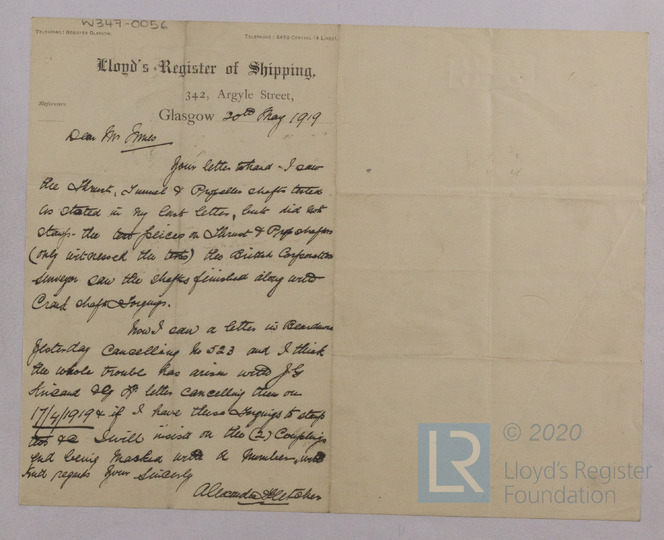 W347-0056
TELEGRAMS: REGISTER GLASGOW.
TELEPHONE: 5472 CENTRAL (4 LINES).
Lloyd's Register of Shipping,
342, Argyle Street,
Reference
Glasgow 20th May 1919
Dear Mr Innes
Your letter to hand - I saw
the Thrust, Tunnel & Propeller shafts tested
as stated in my last letter, but did not
stamp the test pieces on Thrust & Prop shafts
(only witnessed the tests) the British Corporation
surveyor saw the shafts finished along with
Crank shaft Forgings.
Now I saw a letter in Beardmore
Yesterday cancelling No 523 and I think
the whole trouble has arisen with J.G
letter cancelling them on
17/4/1919 & if I have these Forgings to stamp
I will insist on the (2) Couplings
end being marked with a number, with
kind regards Your Sincerely
Alexander Fletcher
LR © 2020
Lloyd's Register
Foundation